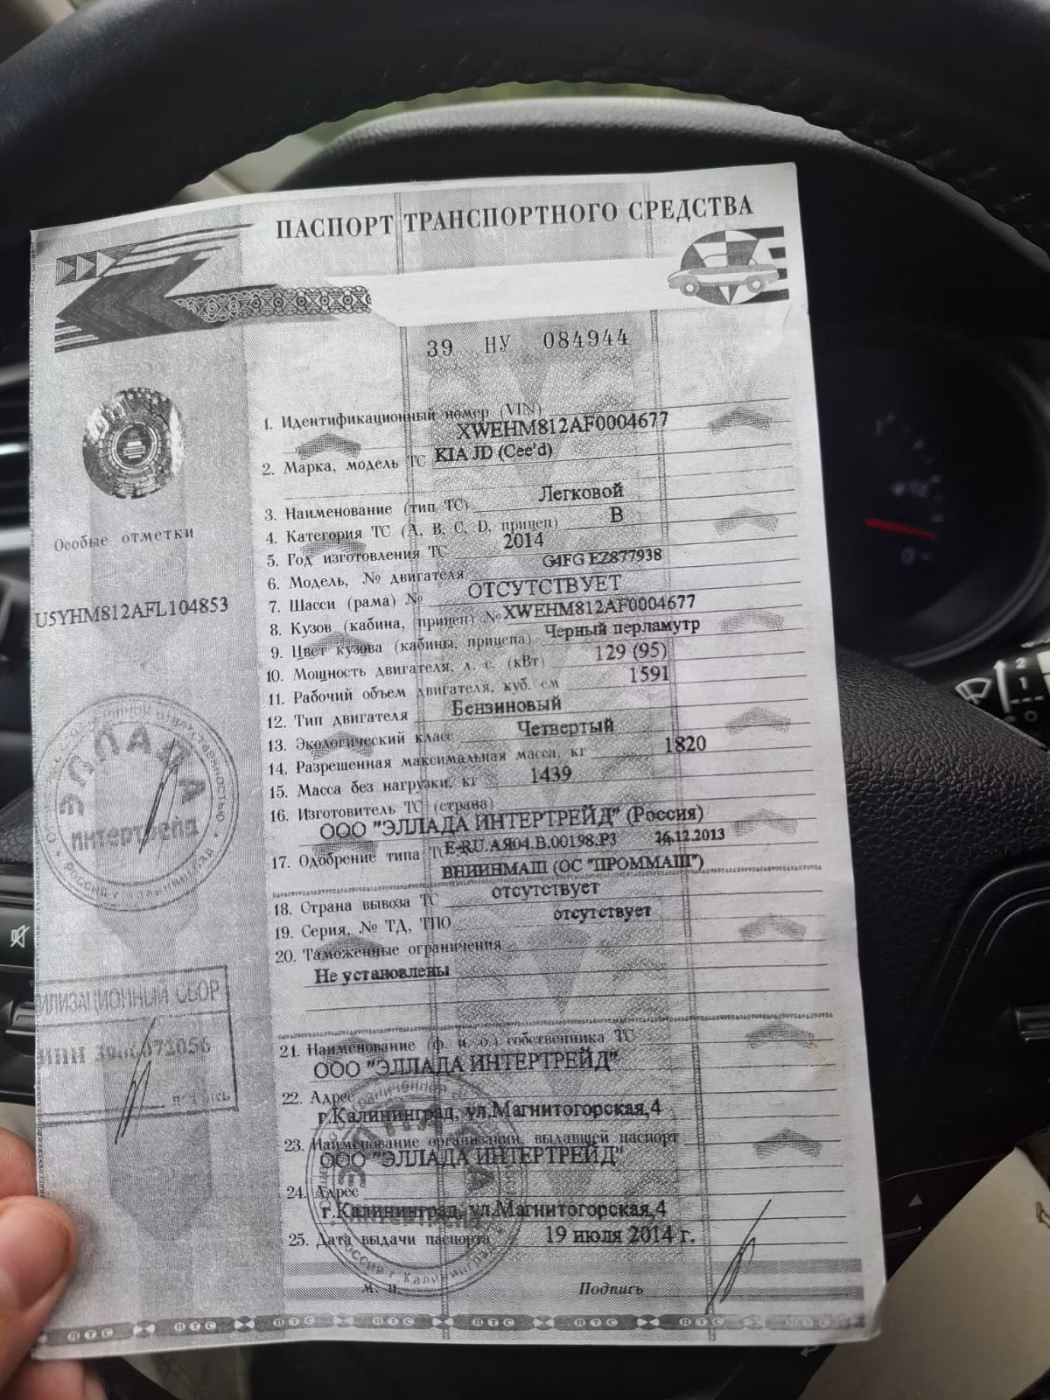 ПАСПОРТ ТРАНСПОРТНОГО СРЕДСТВА
39 НУ 084944
1. Идентификационный номер (VIN)
XWEHM812AF0004677
2. Марка, модель ТС KIA JD (Cee'd)
3. Наименование (тип ТС) Легковой
4. Категория ТС (А, В, С, D, прицеп) В
5. Год изготовления ТС 2014
6. Модель, № двигателя G4FG EZ877938
7. Шасси (рама) № ОТСУТСТВУЕТ
8. Кузов (кабина, прицеп) № XWEHM812AF0004677
9. Цвет кузова (кабина, прицепа) Черный перламутр
10. Мощность двигателя, л. с. (кВт) 129 (95)
11. Рабочий объем двигателя, куб. см 1591
12. Тип двигателя Бензиновый
13. Экологический класс Четвертый
14. Разрешенная максимальная масса, кг 1820
15. Масса без нагрузки, кг 1439
16. Изготовитель ТС (страна)
ООО "ЭЛЛАДА ИНТЕРТРЕЙД" (Россия)
17. Одобрение типа ТС E-RU.АЯ04.В.00198.Р3 26.12.2013
ВНИИНМАШ (ОС "ПРОММАШ")
18. Страна вывоза ТС отсутствует
19. Серия, № ТД, ТПО отсутствует
20. Таможенные ограничения
Не установлены
21. Наименование (ф. и. о.) собственника ТС
ООО "ЭЛЛАДА ИНТЕРТРЕЙД"
22. Адрес
г.Калининград, ул.Магнитогорская,4
23. Наименование организации, выдавшей паспорт
ООО "ЭЛЛАДА ИНТЕРТРЕЙД"
24. Адрес
г.Калининград, ул.Магнитогорская,4
25. Дата выдачи паспорта 19 июля 2014 г.
М. П. Подпись
Особые отметки
U5YHM812AFL104853
ЭЛЛАДА
интертрейд
ИЛИЗАЦИОННЫЙ СБОР
ИНН
подпись
ПТС ПТС ПТС ПТС ПТС ПТС ПТС